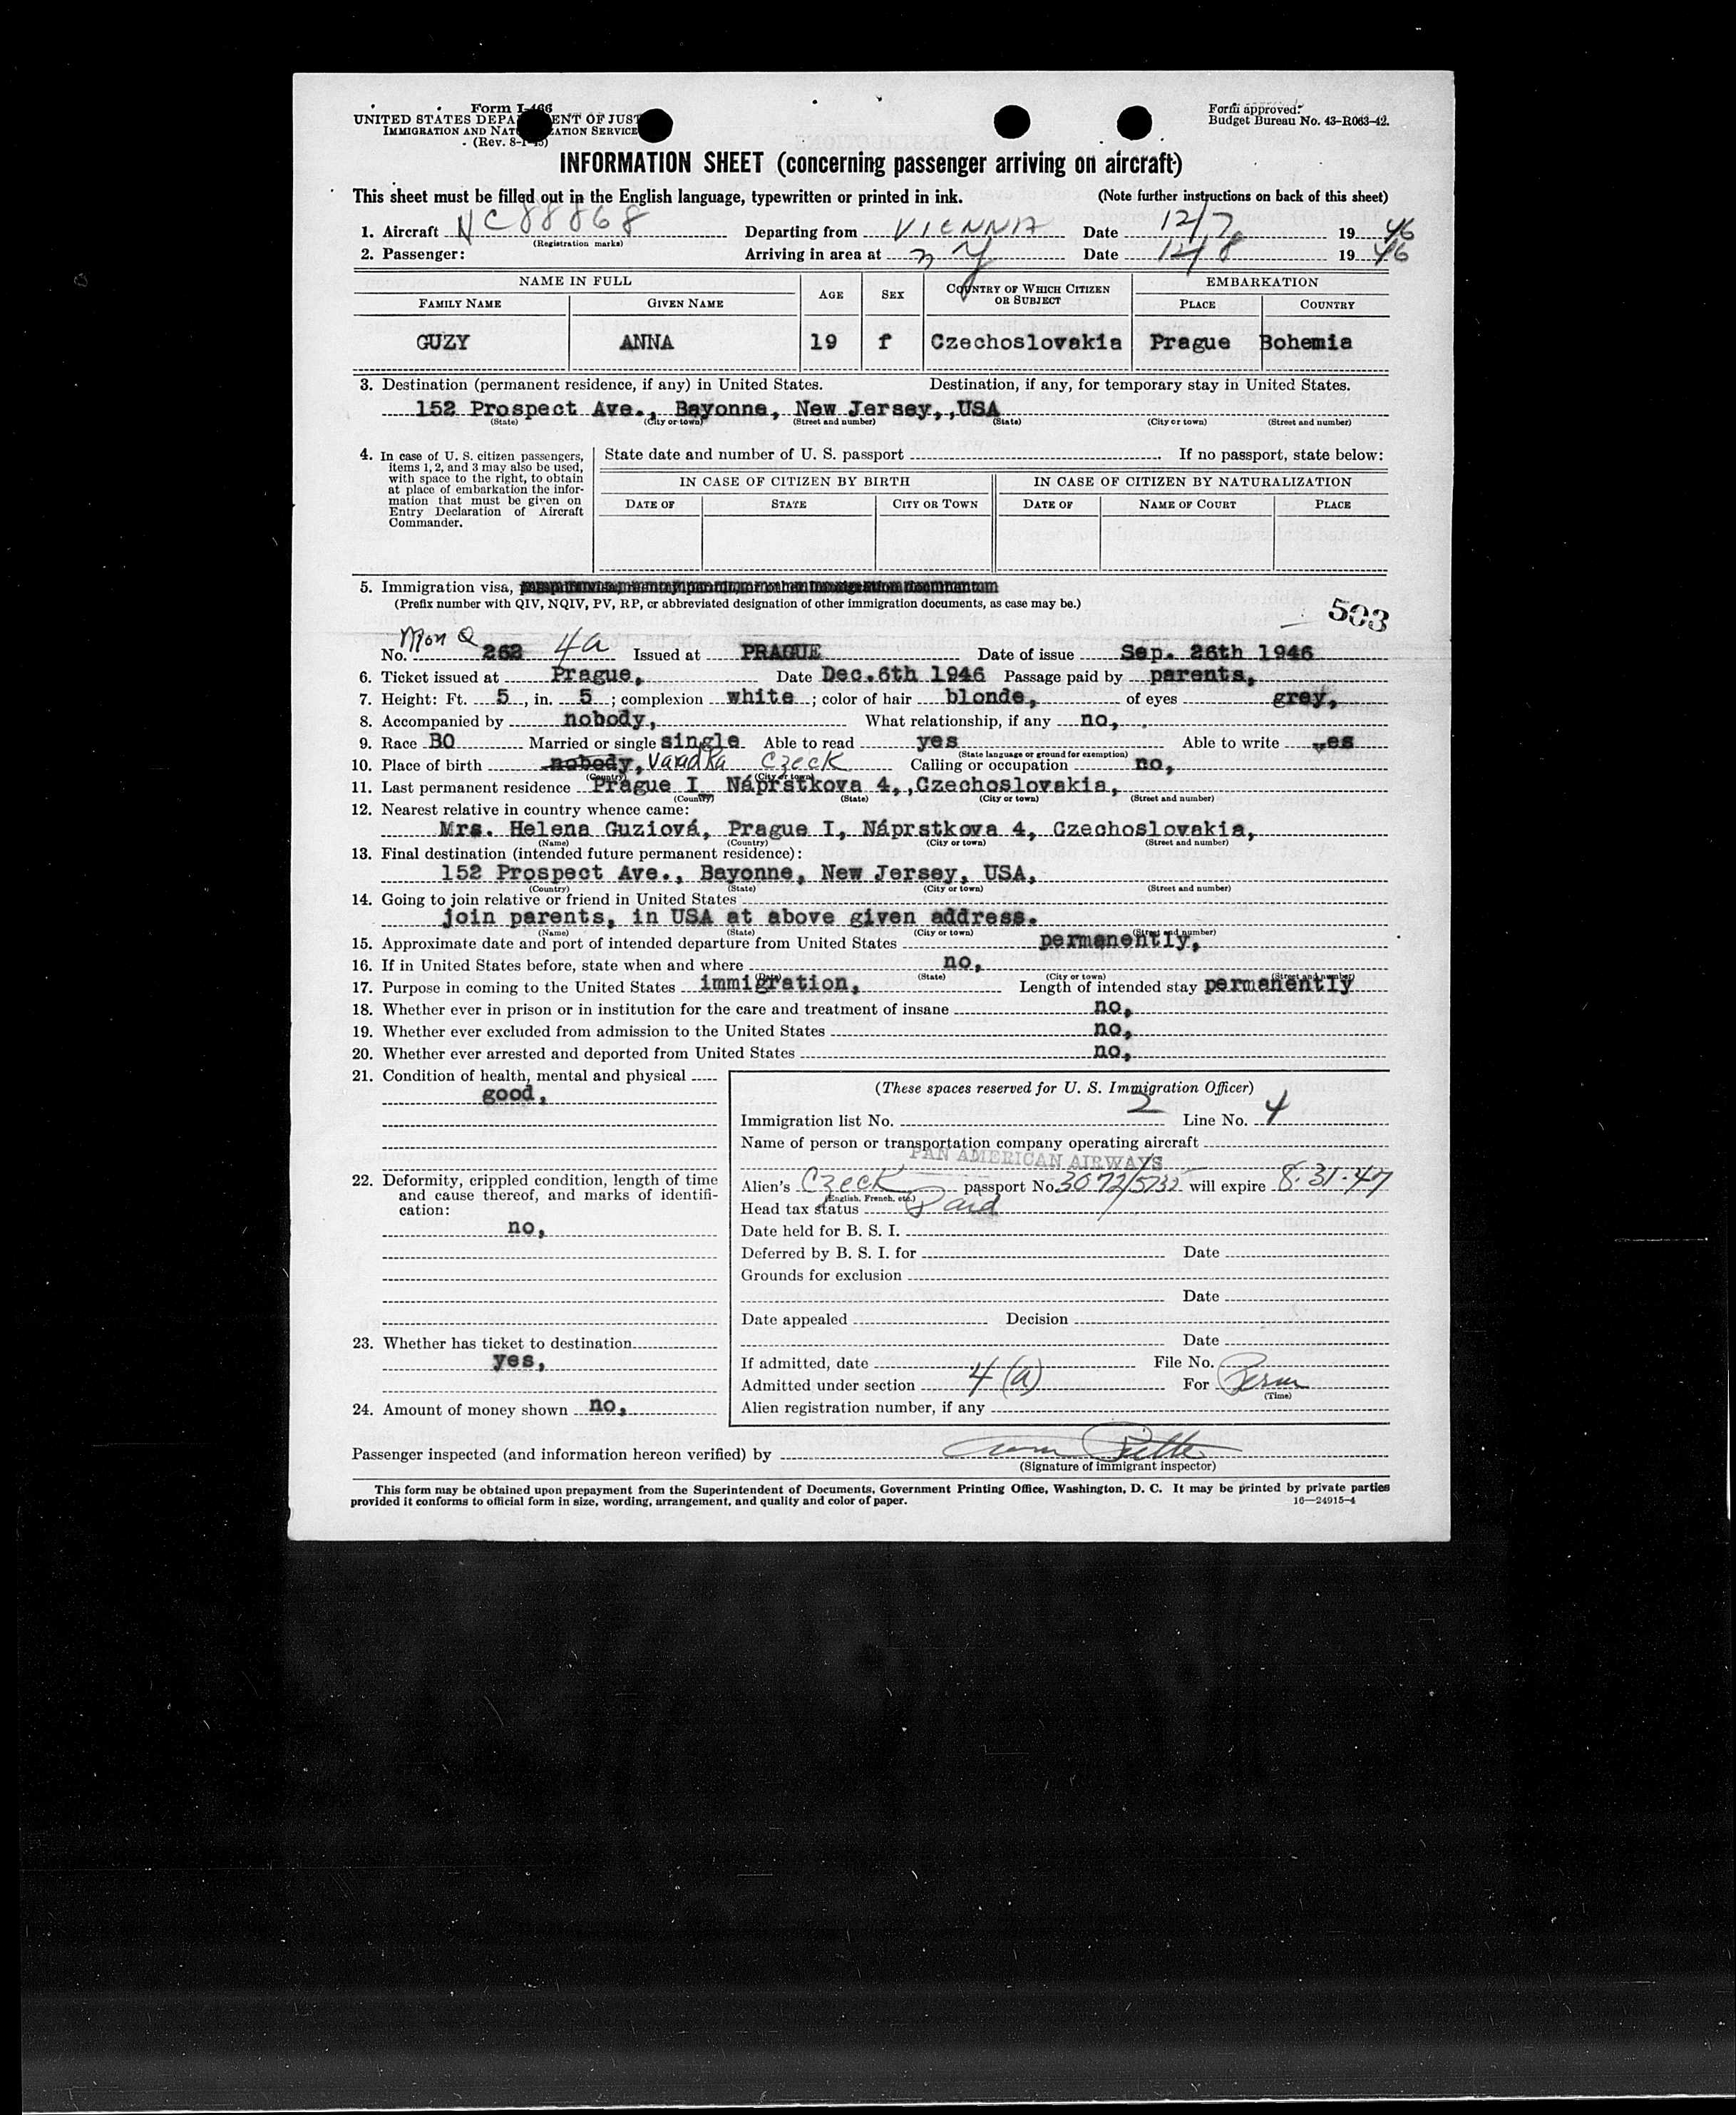 Form I-466
UNITED STATES DEPARTMENT OF JUSTICE
IMMIGRATION AND NATURALIZATION SERVICE
(Rev. 8-1-45)
Form approved.
Budget Bureau No. 43-R063-42.
INFORMATION SHEET (concerning passenger arriving on aircraft)
This sheet must be filled out in the English language, typewritten or printed in ink. (Note further instructions on back of this sheet)
1. Aircraft NC88868 Departing from VIENNA Date 12/7 1946
(Registration marks)
2. Passenger: Arriving in area at NY Date 12/8 1946
NAME IN FULL AGE SEX COUNTRY OF WHICH CITIZEN OR SUBJECT EMBARKATION
FAMILY NAME GIVEN NAME PLACE COUNTRY
GUZY ANNA 19 f Czechoslovakia Prague Bohemia
3. Destination (permanent residence, if any) in United States. Destination, if any, for temporary stay in United States.
152 Prospect Ave., Bayonne, New Jersey,,USA
(State) (City or town) (Street and number) (State) (City or town) (Street and number)
4. In case of U. S. citizen passengers, items 1, 2, and 3 may also be used, with space to the right, to obtain at place of embarkation the information that must be given on Entry Declaration of Aircraft Commander.
State date and number of U. S. passport If no passport, state below:
IN CASE OF CITIZEN BY BIRTH IN CASE OF CITIZEN BY NATURALIZATION
DATE OF STATE CITY OR TOWN DATE OF NAME OF COURT PLACE
5. Immigration visa,
(Prefix number with QIV, NQIV, PV, RP, or abbreviated designation of other immigration documents, as case may be.)
503
No. Non Q 262 4a Issued at PRAGUE Date of issue Sep. 26th 1946
6. Ticket issued at Prague, Date Dec.6th 1946 Passage paid by parents,
7. Height: Ft. 5, in. 5; complexion white; color of hair blonde, of eyes grey,
8. Accompanied by nobody, What relationship, if any no,
9. Race BO Married or single single Able to read yes Able to write yes
(State language or ground for exemption)
10. Place of birth nobody, Varadka Czeck Calling or occupation no,
(Country) (City or town)
11. Last permanent residence Prague I Náprstkova 4,,Czechoslovakia,
(Country) (State) (City or town) (Street and number)
12. Nearest relative in country whence came:
Mrs. Helena Guziová, Prague I, Náprstkova 4, Czechoslovakia,
(Name) (Country) (City or town) (Street and number)
13. Final destination (intended future permanent residence):
152 Prospect Ave., Bayonne, New Jersey, USA,
(Country) (State) (City or town) (Street and number)
14. Going to join relative or friend in United States
join parents, in USA at above given address.
(Name) (State) (City or town) (Street and number)
15. Approximate date and port of intended departure from United States permanently,
16. If in United States before, state when and where no,
(Date) (State) (City or town) (Street and number)
17. Purpose in coming to the United States immigration, Length of intended stay permanently
18. Whether ever in prison or in institution for the care and treatment of insane no,
19. Whether ever excluded from admission to the United States no,
20. Whether ever arrested and deported from United States no,
21. Condition of health, mental and physical
good,
22. Deformity, crippled condition, length of time and cause thereof, and marks of identification:
no,
23. Whether has ticket to destination
yes,
24. Amount of money shown no,
(These spaces reserved for U. S. Immigration Officer)
Immigration list No. 2 Line No. 4
Name of person or transportation company operating aircraft
PAN AMERICAN AIRWAYS
Alien's Czeck passport No. 3072/5732 will expire 8-31-47
(English, French, etc.)
Head tax status Paid
Date held for B. S. I.
Deferred by B. S. I. for Date
Grounds for exclusion
Date
Date appealed Decision
Date
If admitted, date File No.
Admitted under section 4 (a) For Perm
(Time)
Alien registration number, if any
Passenger inspected (and information hereon verified) by
(Signature of immigrant inspector)
This form may be obtained upon prepayment from the Superintendent of Documents, Government Printing Office, Washington, D. C. It may be printed by private parties
provided it conforms to official form in size, wording, arrangement, and quality and color of paper. 16—24915-4